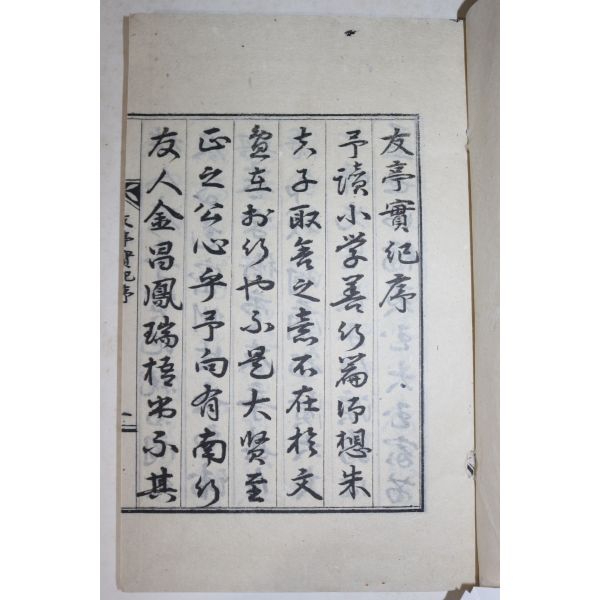 友亭實紀序
予讀小学善行篇仰想朱
夫子取舍之意不在於文
亶在於行也是大賢至
正之公心乎予向有南行
友人金昌鳳瑞梧示其
友亭實紀序
一